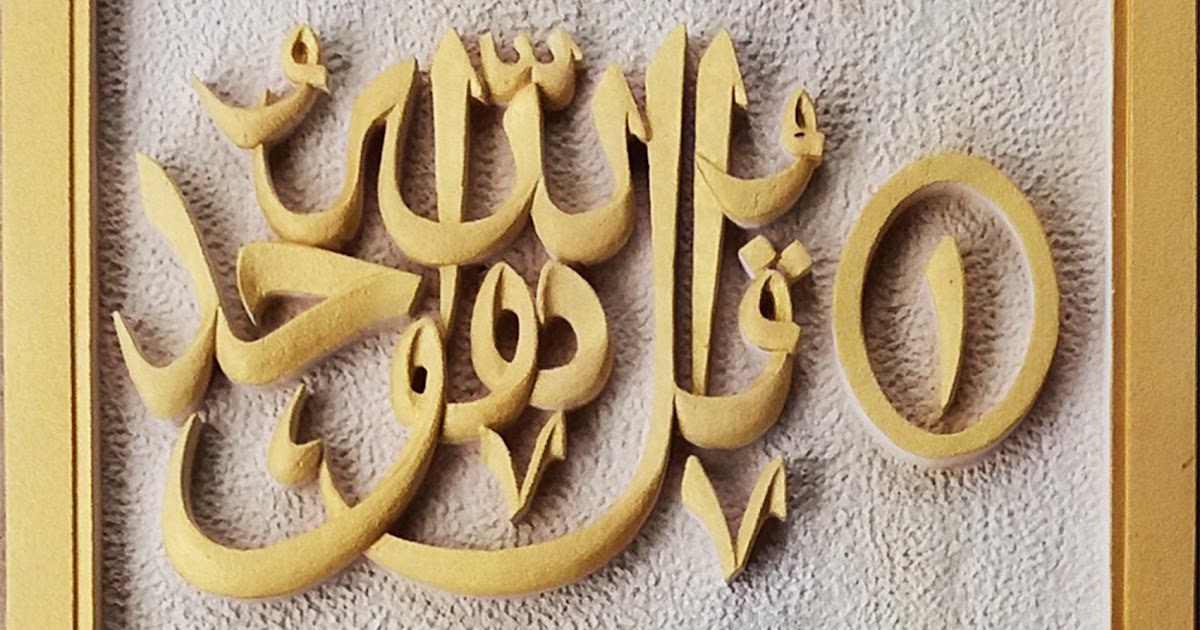 قل هو الله أحد ١